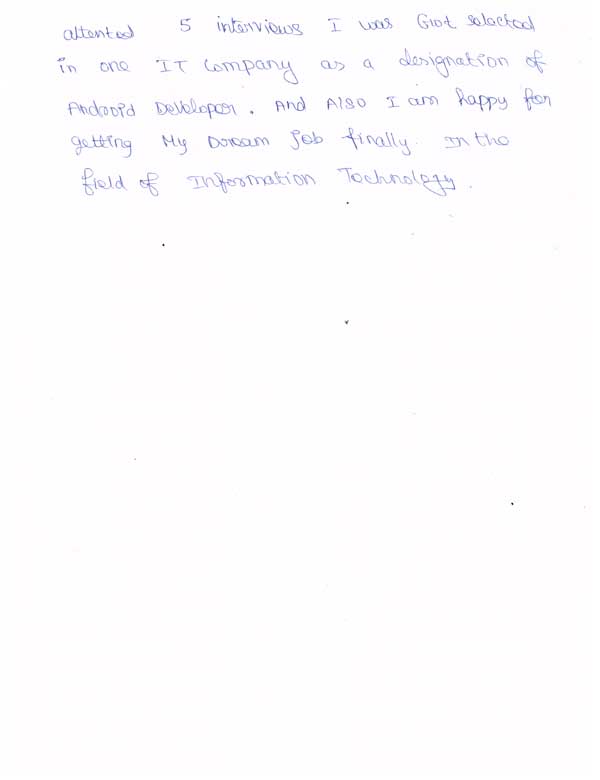 attented 5 interviews I was Got selected
in one IT Company as a designation of
Android Developer. And Also I am happy for
getting My Dream Job finally. In the
field of Information Technology.